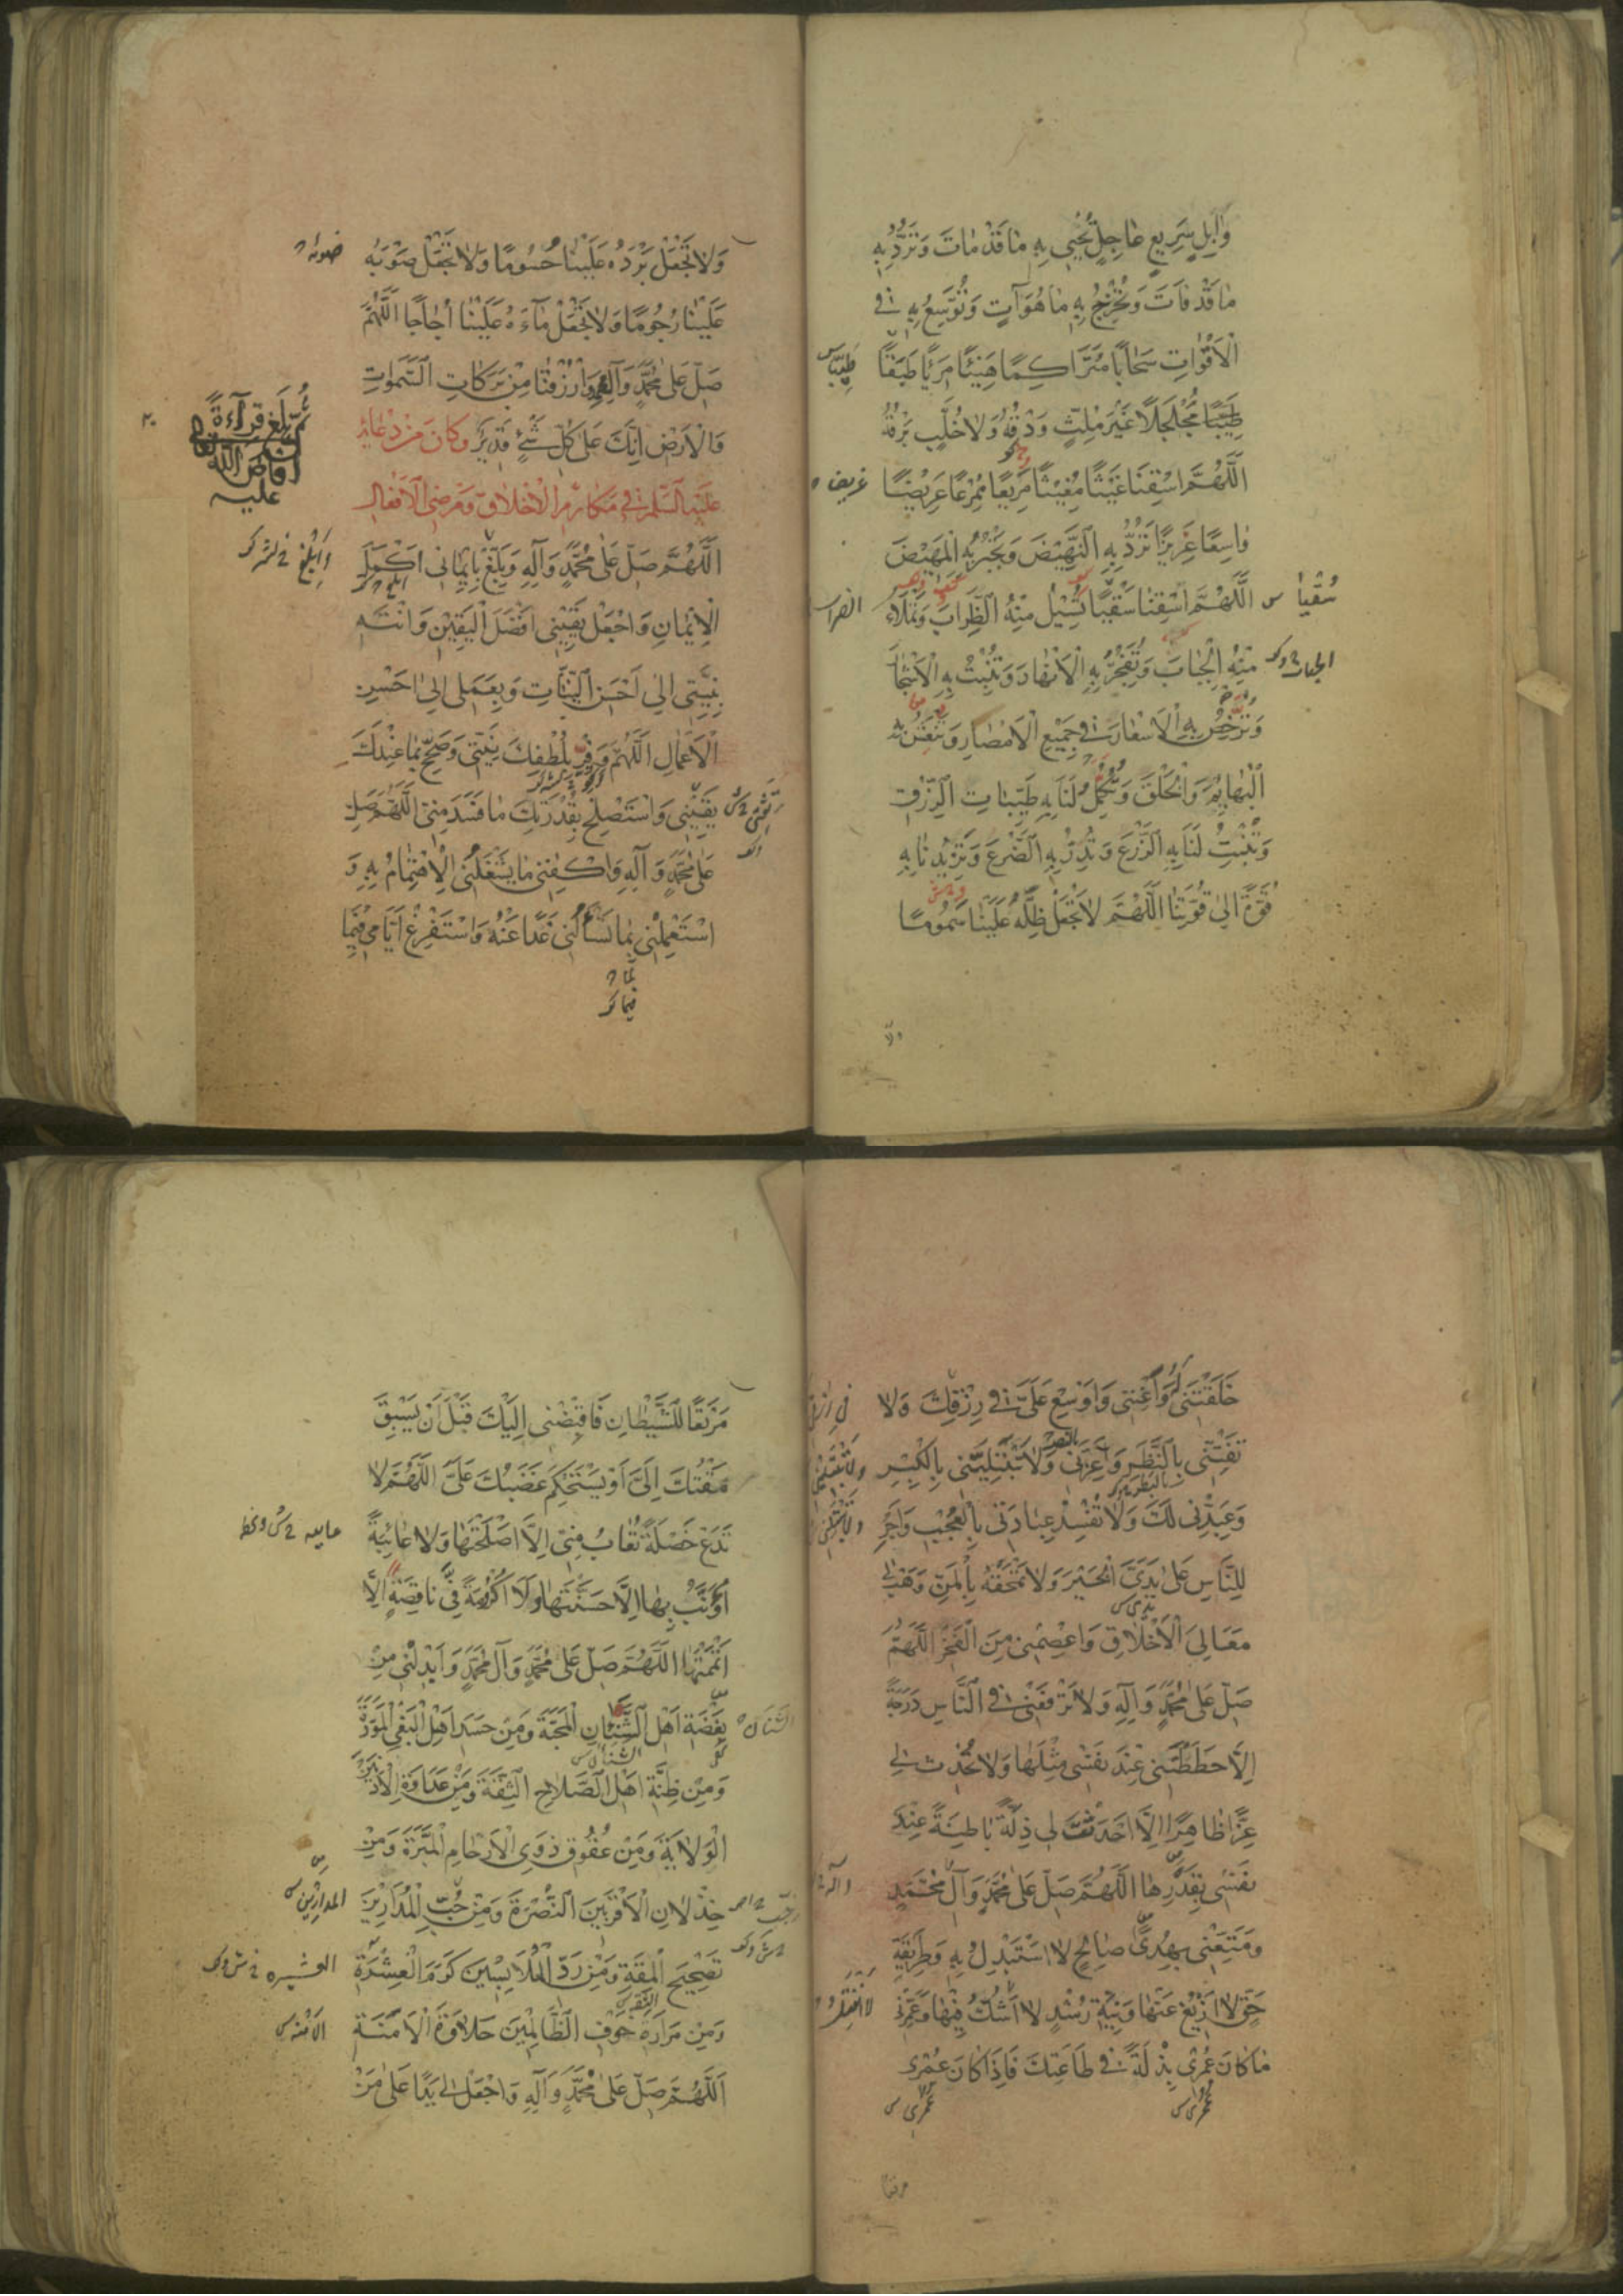 وَابِلٍ سَرِيعٍ عَاجِلٍ تُحْيِي بِهِ مَا قَدْ مَاتَ وَتَرُدُّ بِهِ
مَا قَدْ فَاتَ وَتُخْرِجُ بِهِ مَا هُوَ آتٍ وَتُوَسِّعُ بِهِ فِي
الْأَقْوَاتِ سَحَابًا مُتَرَاكِمًا هَنِيئًا مَرِيئًا طَبَقًا
طَيِّبًا مُجَلْجَلًا غَيْرَ مُلِثٍّ وَدْقُهُ وَلَا خُلَّبٍ بَرْقُهُ
اللَّهُمَّ اسْقِنَا غَيْثًا مُغِيثًا مَرِيعًا مُمْرِعًا عَرِيضًا
عريض
وَاسِعًا غَزِيرًا تَرُدُّ بِهِ النَّهِيضَ وَتَجْبُرُ بِهِ الْمَهِيضَ
سُقْيًا س
اللَّهُمَّ اسْقِنَا سَقْيًا تُسِيلُ مِنْهُ الظِّرَابَ وَتَمْلَأُ
مِنْهُ الْجِبَابَ وَتُفَجِّرُ بِهِ الْأَنْهَارَ وَتُنْبِتُ بِهِ الْأَشْجَارَ
وَتُرَخِّصُ بِهِ الْأَسْعَارَ فِي جَمِيعِ الْأَمْصَارِ وَتَنْعَشُ بِهِ
الْبَهَائِمَ وَالْخَلْقَ وَتُكْمِلُ لَنَا بِهِ طَيِّبَاتِ الرِّزْقِ
وَتُنْبِتُ لَنَا بِهِ الزَّرْعَ وَتُدِرُّ بِهِ الضَّرْعَ وَتَزِيدُنَا بِهِ
قُوَّةً إِلَى قُوَّتِنَا اللَّهُمَّ لَا تَجْعَلْ ظِلَّهُ عَلَيْنَا سَمُومًا
ولا
وَلَا تَجْعَلْ بَرْدَهُ عَلَيْنَا حُسُومًا وَلَا تَجْعَلْ صَوْبَهُ
عَلَيْنَا رُجُومًا وَلَا تَجْعَلْ مَاءَهُ عَلَيْنَا أُجَاجًا اللَّهُمَّ
صَلِّ عَلَى مُحَمَّدٍ وَآلِ مُحَمَّدٍ وَارْزُقْنَا مِنْ بَرَكَاتِ السَّمَوَاتِ
وَالْأَرْضِ إِنَّكَ عَلَى كُلِّ شَيْءٍ قَدِيرٌ وَكَانَ مِنْ دُعَائِهِ
عَلَيْهِ السَّلَامُ فِي مَكَارِمِ الْأَخْلَاقِ وَمَرْضِيِّ الْأَفْعَالِ
ثم بلغ قراءة
أفاض الله
عليه
اللَّهُمَّ صَلِّ عَلَى مُحَمَّدٍ وَآلِهِ وَبَلِّغْ بِإِيمَانِي أَكْمَلَ
الْإِيمَانِ وَاجْعَلْ يَقِينِي أَفْضَلَ الْيَقِينِ وَانْتَهِ
بِنِيَّتِي إِلَى أَحْسَنِ النِّيَّاتِ وَبِعَمَلِي إِلَى أَحْسَنِ
الْأَعْمَالِ اللَّهُمَّ وَفِّرْ بِلُطْفِكَ نِيَّتِي وَصَحِّحْ بِمَا عِنْدَكَ
يَقِينِي وَاسْتَصْلِحْ بِقُدْرَتِكَ مَا فَسَدَ مِنِّي اللَّهُمَّ صَلِّ
عَلَى مُحَمَّدٍ وَآلِهِ وَاكْفِنِي مَا يَشْغَلُنِي الْاهْتِمَامُ بِهِ وَ
اسْتَعْمِلْنِي بِمَا تَسْأَلُنِي غَدًا عَنْهُ وَاسْتَفْرِغْ أَيَّامِي فِيمَا
خَلَقْتَنِي لَهُ وَأَغْنِنِي وَأَوْسِعْ عَلَيَّ فِي رِزْقِكَ وَلَا
تَفْتِنِّي بِالنَّظَرِ وَأَعِزَّنِي وَلَا تَبْتَلِيَنِّي بِالْكِبْرِ
وَعَبِّدْنِي لَكَ وَلَا تُفْسِدْ عِبَادَتِي بِالْعُجْبِ وَأَجْرِ
لِلنَّاسِ عَلَى يَدَيَّ الْخَيْرَ وَلَا تَمْحَقْهُ بِالْمَنِّ وَهَبْ لِي
مَعَالِيَ الْأَخْلَاقِ وَاعْصِمْنِي مِنَ الْفَخْرِ اللَّهُمَّ
صَلِّ عَلَى مُحَمَّدٍ وَآلِهِ وَلَا تَرْفَعْنِي فِي النَّاسِ دَرَجَةً
إِلَّا حَطَطْتَنِي عِنْدَ نَفْسِي مِثْلَهَا وَلَا تُحْدِثْ لِي
عِزًّا ظَاهِرًا إِلَّا أَحْدَثْتَ لِي ذِلَّةً بَاطِنَةً عِنْدَ
نَفْسِي بِقَدَرِهَا اللَّهُمَّ صَلِّ عَلَى مُحَمَّدٍ وَآلِ مُحَمَّدٍ
وَمَتِّعْنِي بِهُدًى صَالِحٍ لَا أَسْتَبْدِلُ بِهِ وَطَرِيقَةِ
حَقٍّ لَا أَزِيغُ عَنْهَا وَنِيَّةِ رُشْدٍ لَا أَشُكُّ فِيهَا وَعَمِّرْنِي
مَا كَانَ عُمْرِي بِذْلَةً فِي طَاعَتِكَ فَإِذَا كَانَ عُمْرِي
عُمُرِي س
عُمُرِي س
مرتعا
مَرْتَعًا لِلشَّيْطَانِ فَاقْبِضْنِي إِلَيْكَ قَبْلَ أَنْ يَسْبِقَ
مَقْتُكَ إِلَيَّ أَوْ يَسْتَحْكِمَ غَضَبُكَ عَلَيَّ اللَّهُمَّ لَا
تَدَعْ خَصْلَةً تُعَابُ مِنِّي إِلَّا أَصْلَحْتَهَا وَلَا عَائِبَةً
أُؤَنَّبُ بِهَا إِلَّا حَسَّنْتَهَا وَلَا أُكْرُومَةً فِيَّ نَاقِصَةً إِلَّا
أَتْمَمْتَهَا اللَّهُمَّ صَلِّ عَلَى مُحَمَّدٍ وَآلِ مُحَمَّدٍ وَأَبْدِلْنِي مِنْ
بِغْضَةِ أَهْلِ الشَّنَئَانِ الْمَحَبَّةَ وَمِنْ حَسَدِ أَهْلِ الْبَغْيِ الْمَوَدَّةَ
وَمِنْ ظِنَّةِ أَهْلِ الصَّلَاحِ الثِّقَةَ وَمِنْ عَدَاوَةِ الْأَدْنَيْنَ
الْوَلَايَةَ وَمِنْ عُقُوقِ ذَوِي الْأَرْحَامِ الْمَبَرَّةَ وَمِنْ
خِذْلَانِ الْأَقْرَبِينَ النُّصْرَةَ وَمِنْ حُبِّ الْمُدَارِينَ
المدارين س
تَصْحِيحَ الْمِقَةِ وَمِنْ رَدِّ الْمُلَابِسِينَ كَرَمَ الْعِشْرَةِ
وَمِنْ مَرَارَةِ خَوْفِ الظَّالِمِينَ حَلَاوَةَ الْأَمَنَةِ
الأمنة س
اللَّهُمَّ صَلِّ عَلَى مُحَمَّدٍ وَآلِهِ وَاجْعَلْ لِي يَدًا عَلَى مَنْ